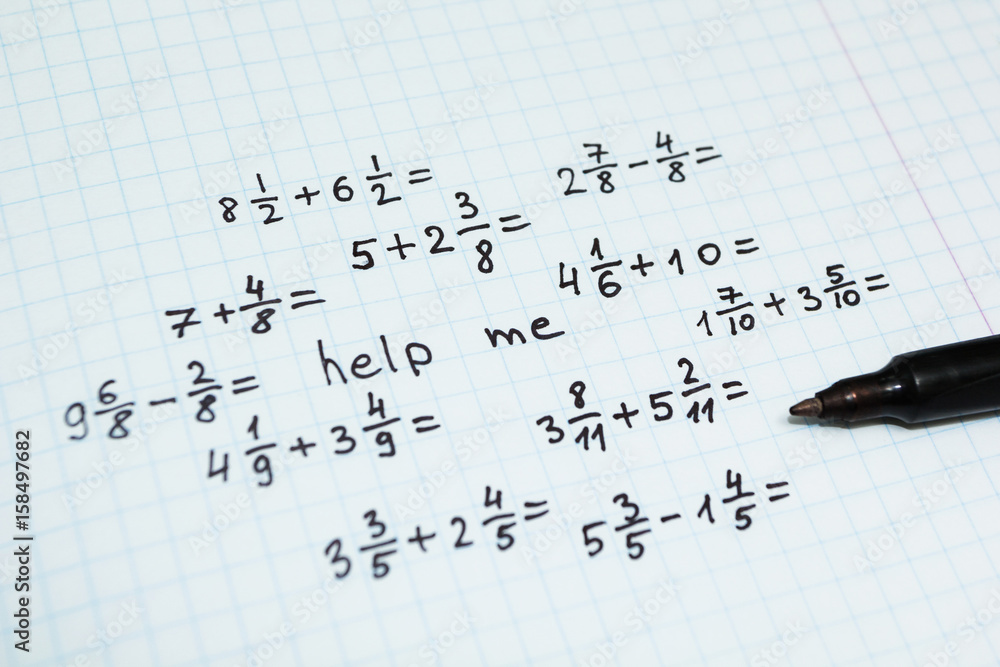 8 1/2 + 6 1/2 =
2 7/8 - 4/8 =
5 + 2 3/8 =
4 1/6 + 10 =
7 + 4/8 =
1 7/10 + 3 5/10 =
help me
9 6/8 - 2/8 =
3 8/11 + 5 2/11 =
4 1/9 + 3 4/9 =
3 3/5 + 2 4/5 =
5 3/5 - 1 4/5 =
Adobe Stock | #158497682